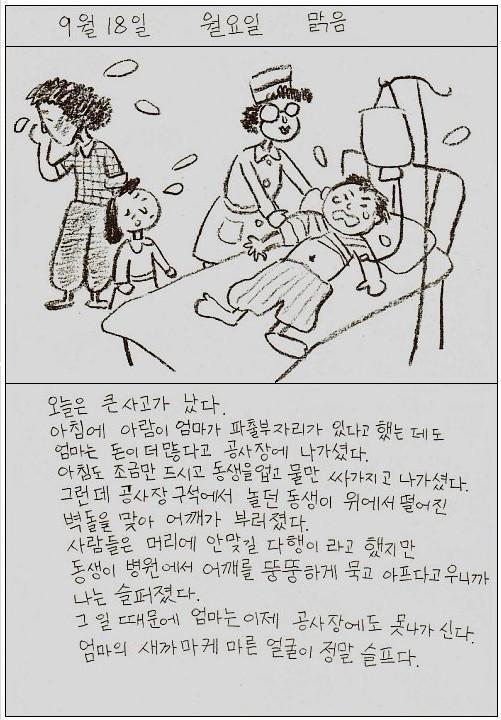 9월 18일 월요일 맑음
오늘은 큰 사고가 났다.
아침에 아람이 엄마가 파출부자리가 있다고 했는데도
엄마는 돈이 더많다고 공사장에 나가셨다.
아침도 조금만 드시고 동생을업고 물만 싸가지고 나가셨다.
그런데 공사장 구석에서 놀던 동생이 위에서 떨어진
벽돌을 맞아 어깨가 부러졌다.
사람들은 머리에 안맞길 다행이 라고 했지만
동생이 병원에서 어깨를 뚱뚱하게 묶고 아프다고우니까
나는 슬퍼졌다.
그 일 때문에 엄마는이제 공사장에도 못나가 신다.
엄마의 새까마케 마른 얼굴이 정말 슬프다.